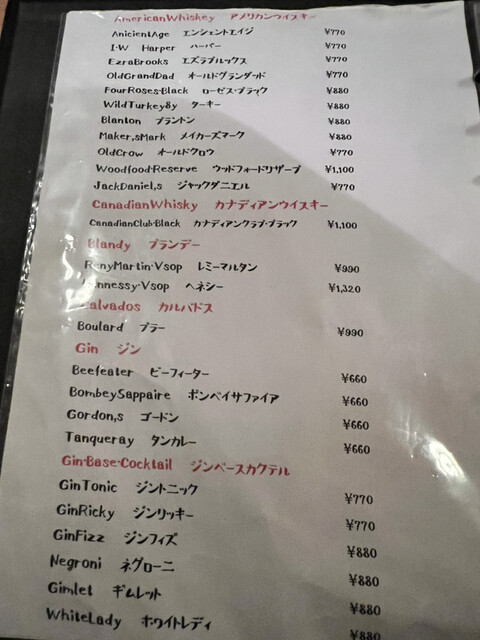 AmericanWhiskey アメリカンウイスキー
AnicientAge エンシェントエイジ ¥770
I·W Harper ハーパー ¥770
EzraBrooks エズラブルックス ¥770
OldGrandDad オールドグランダッド ¥770
FourRoses·Black ローゼス・ブラック ¥880
WildTurkey8y ターキー ¥880
Blanton ブラントン ¥880
Maker,sMark メイカーズマーク ¥880
OldCrow オールドクロウ ¥770
Woodfood·Reserve ウッドフォードリザーブ ¥1,100
JackDaniel,s ジャックダニエル ¥770
CanadianWhisky カナディアンウイスキー
CanadianClub·Black カナディアンクラブ・ブラック ¥1,100
Blandy ブランデー
RemyMartin·Vsop レミーマルタン ¥990
Hennessy·Vsop ヘネシー ¥1,320
Calvados カルバドス
Boulard ブラー ¥990
Gin ジン
Beefeater ビーフィーター ¥660
BombeySappaire ボンベイサファイア ¥660
Gordon,s ゴードン ¥660
Tanqueray タンカレー ¥660
Gin·Base·Cocktail ジンベースカクテル
GinTonic ジントニック ¥770
GinRicky ジンリッキー ¥770
GinFizz ジンフィズ ¥880
Negroni ネグローニ ¥880
Gimlet ギムレット ¥880
WhiteLady ホワイトレディ ¥880